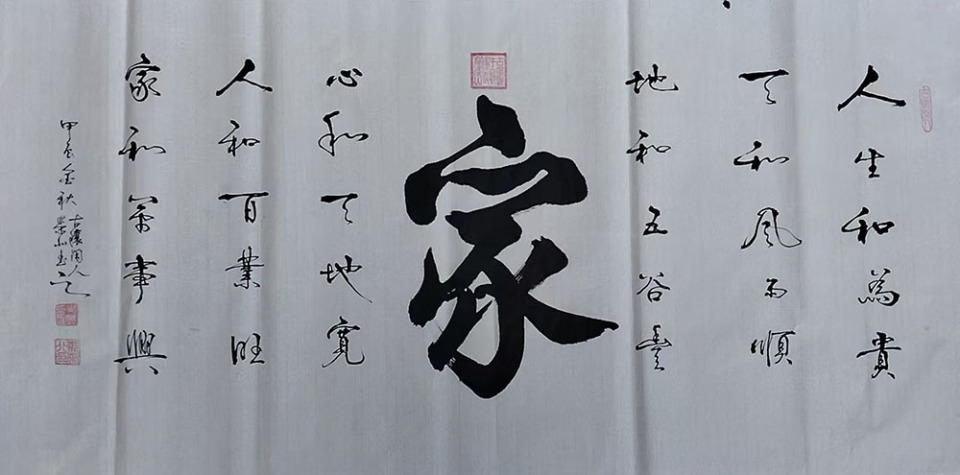 人生和為貴
天和風雨順
地和五谷豊
家
心和天地寬
人和百業旺
家和萬事興
甲辰金秋
古瀼閑人